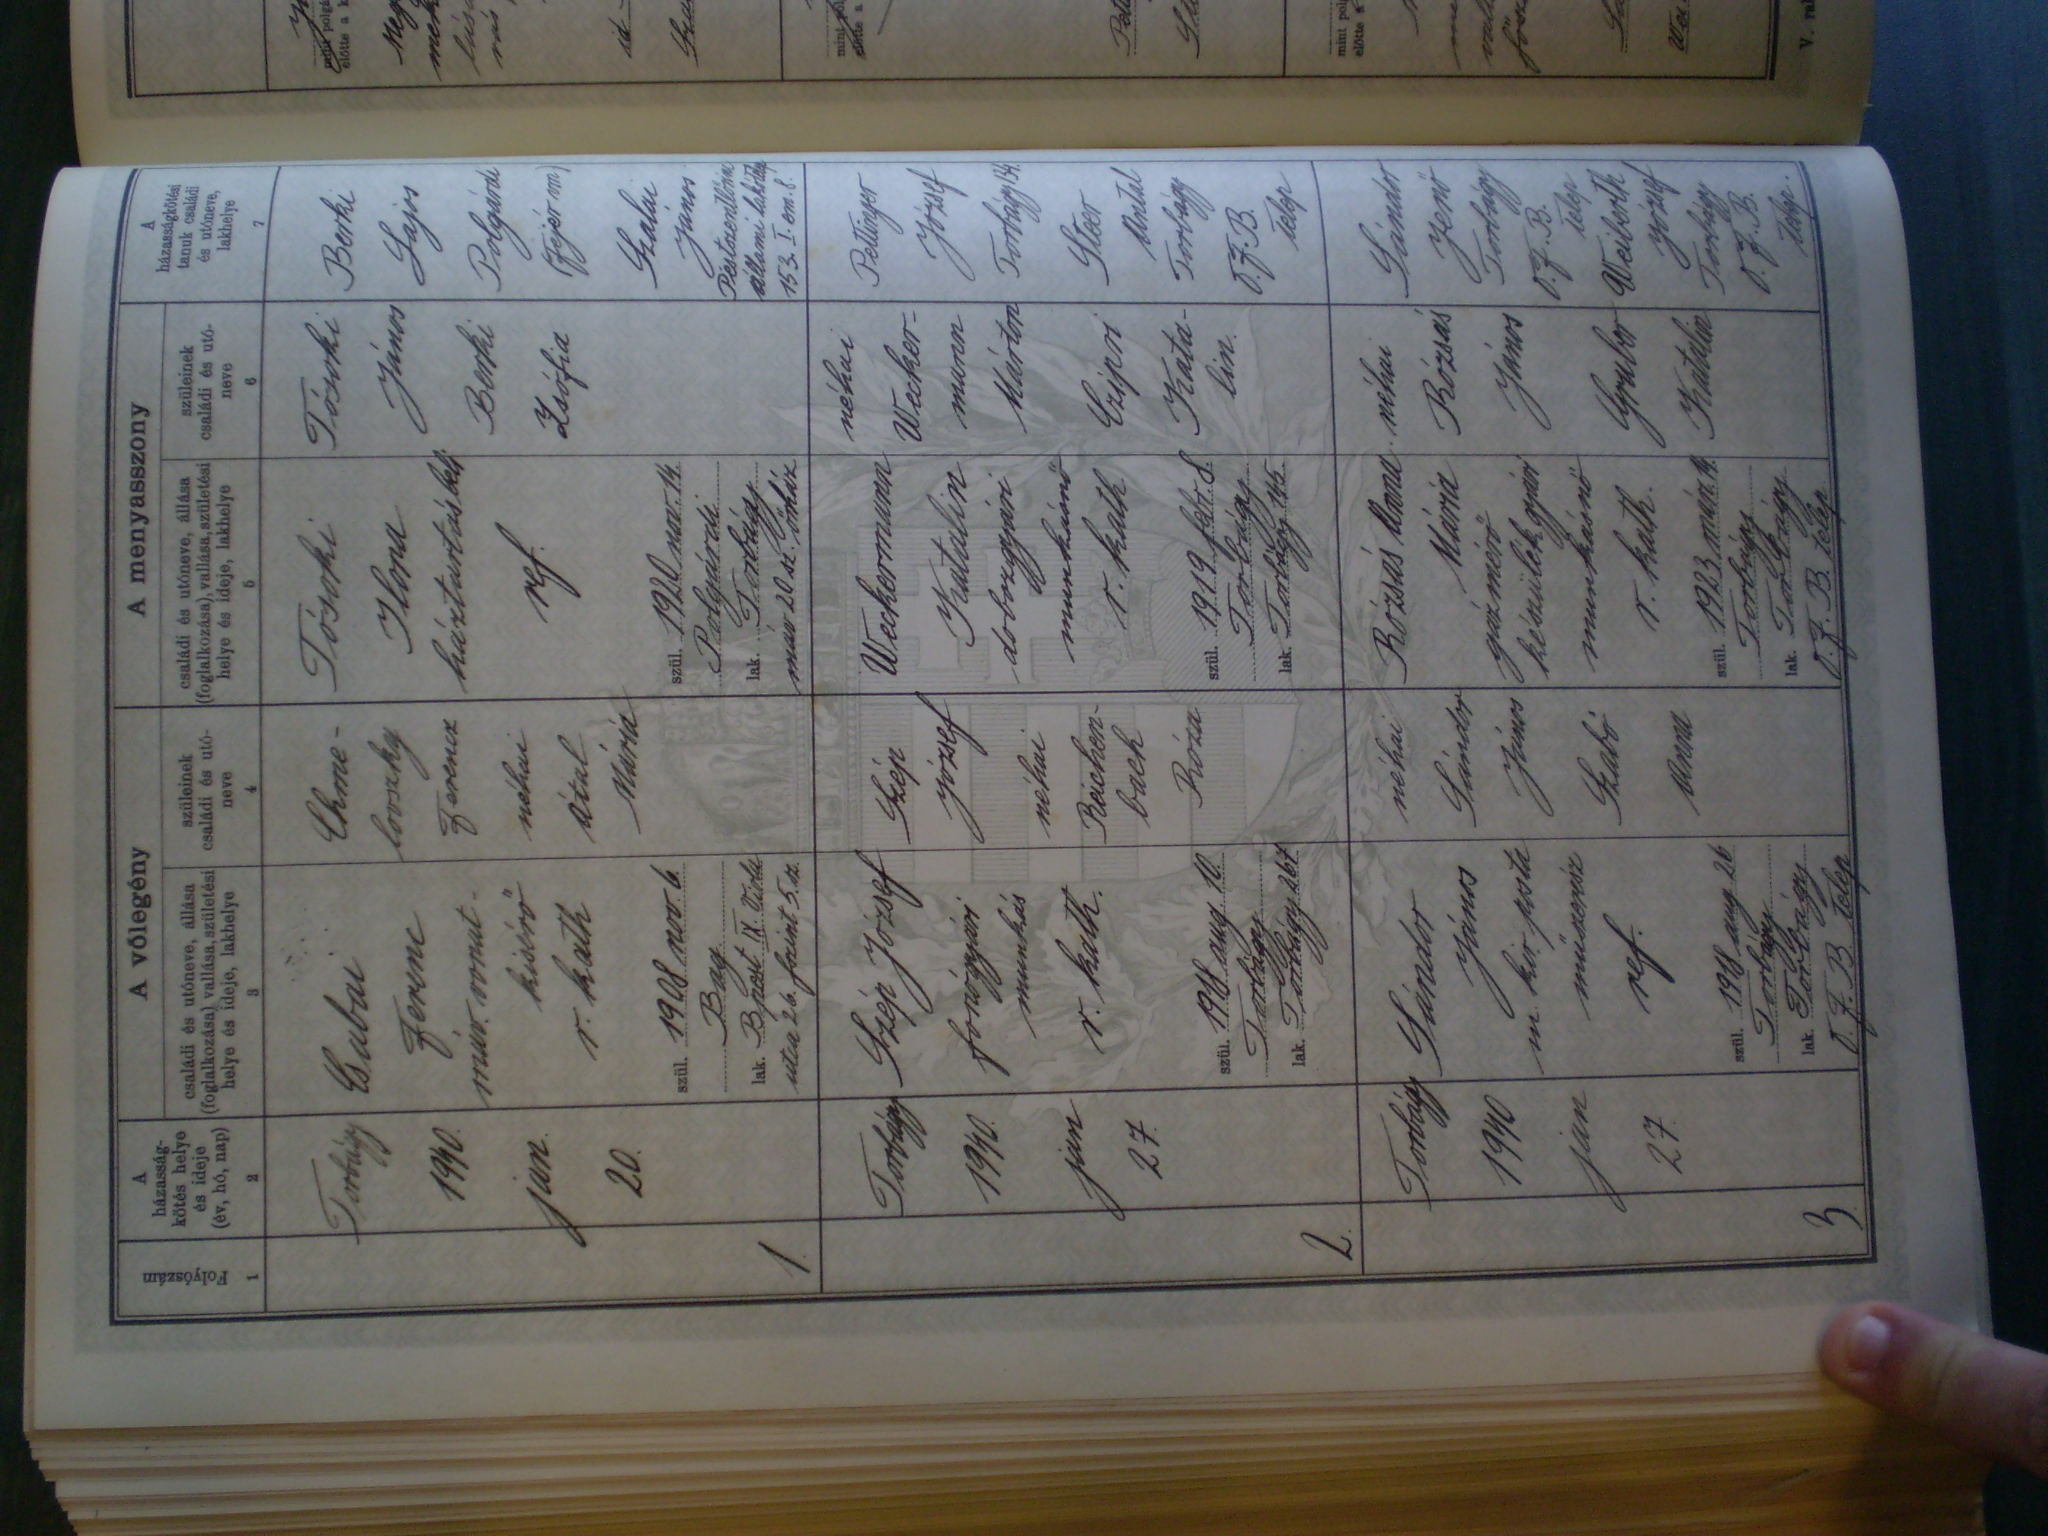 A vőlegény
A menyasszony
Folyószám
1
A
házasság-
kötés helye
és ideje
(év, hó, nap)
2
családi és utóneve, állása
(foglalkozása), vallása, születési
helye és ideje, lakhelye
3
szüleinek
családi és utó-
neve
4
családi és utóneve, állása
(foglalkozása), vallása, születési
helye és ideje, lakhelye
5
szüleinek
családi és utó-
neve
6
A
házasságkötési
tanuk családi
és utóneve,
lakhelye
7
1.
Torbágy
1940.
jan.
20.
Csabai
Ferenc
máv. vonat-
kisérő
r. kath
szül. 1908 nov. 6.
Bag
lak. Bpest IX. Viola
utca 26. faint 5. sz.
Chme-
lovszky
Ferencz
néhai
Antal
Mária
Tósoki
Ilona
háztartásbeli
ref.
szül. 1920 nov. 14.
Polgárdi
lak. Torbágy
máv 20 sz. őrház
Tósoki
János
Berki
Zsófia
Berki
Lajos
Polgárdi
(Fejér vm)
Szalai
János
Pestszentlőrinc
állami lakótelep
153. I. em. 8.
2.
Torbágy
1940.
jan
27.
Szép József
fonógyári
munkás
r. kath.
szül. 1918 aug 10.
Torbágy
lak. Torbágy 267
Szép
József
néhai
Reichen-
bach
Róza
Weckermann
Katalin
dobozgyári
munkásnő
r. kath
szül. 1919 febr. 8.
Torbágy
lak. Torbágy 145.
néhai
Wecker-
mann
Márton
Czipri
Kata-
lin.
Pettinger
József
Torbágy 134.
Steer
Antal
Torbágy
O.F.B.
telep
3.
Torbágy
1940
jan
27.
Sándor
János
m. kir. posta
műszerész
ref.
szül. 1918 aug 26
Torbágy
lak. Torbágy
O.F.B. telep
néhai
Sándor
János
Szabó
Anna
Rózsás Anna
Mária
gázmérő
készülék gyári
munkásnő
r. kath.
szül. 1923 márc. 14.
Torbágy
lak. Torbágy
O.F.B. telep
néhai
Rózsás
János
Gruber
Katalin
Sándor
Jenő
Torbágy
O.F.B.
telep
Weiberth
József
Torbágy
O.F.B.
telep.